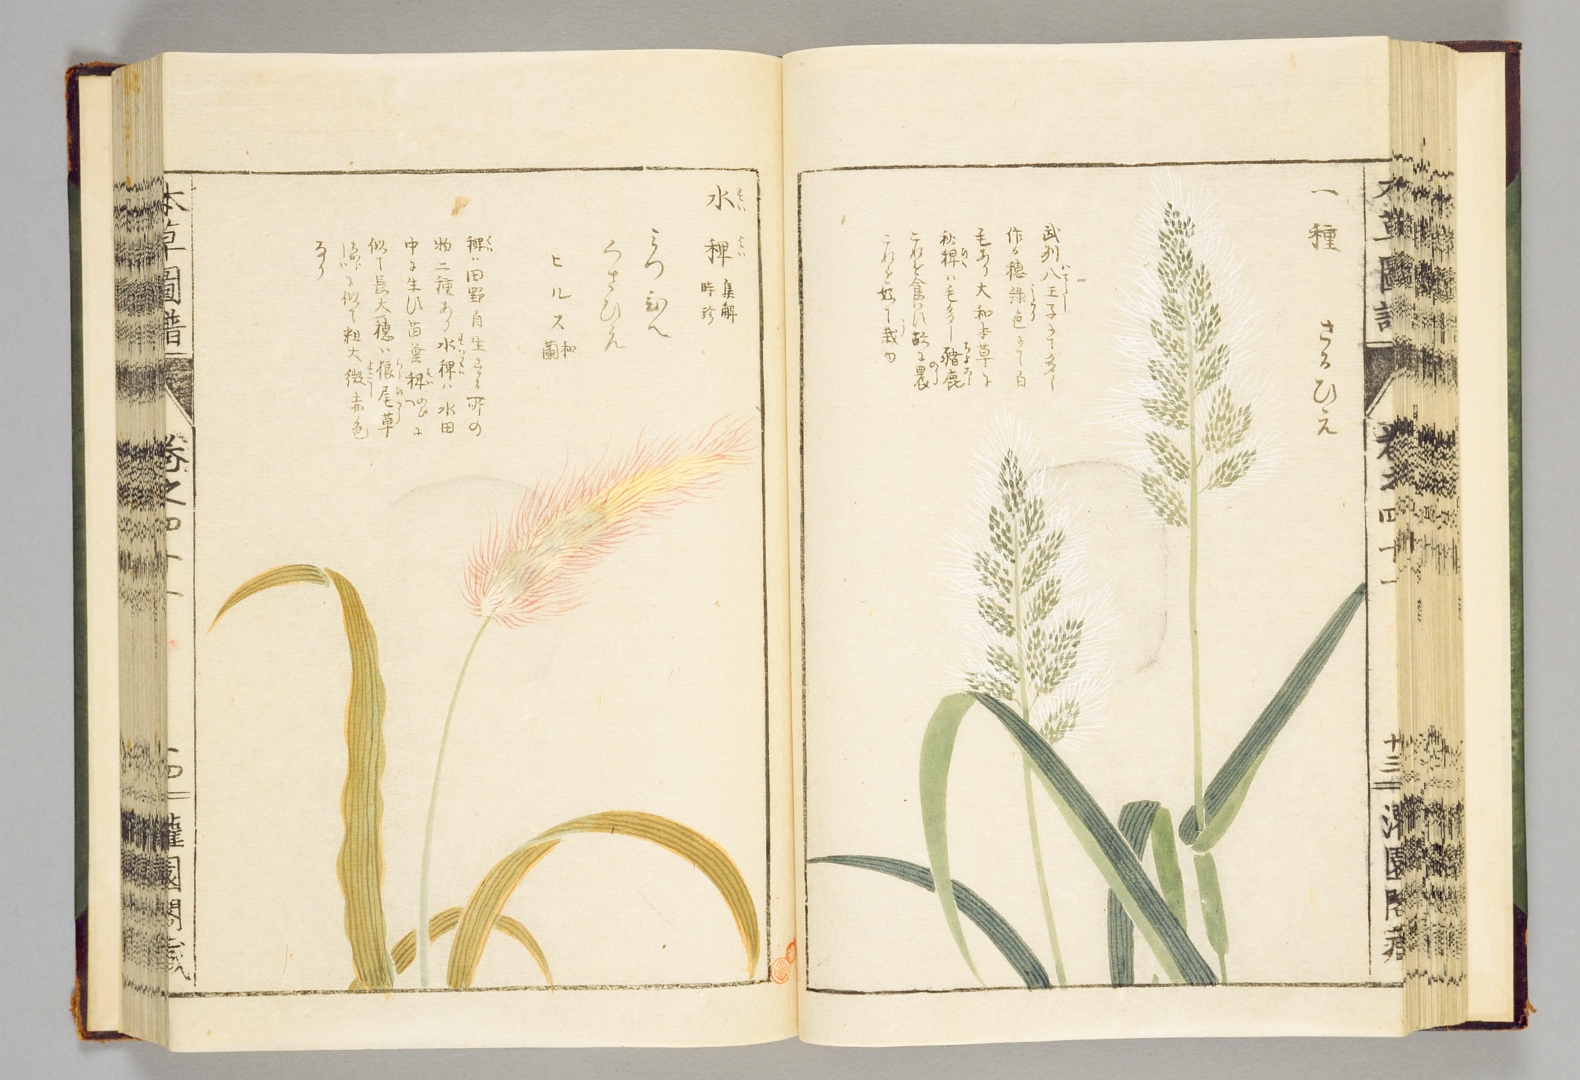 一種 さるひえ
武州八王子にて多し
作る穂緑色にして白
毛あり大和本草に
秋稗は毛多し猪鹿
これを食はず故に農
これを好て栽ゆ
本草圖譜 卷之四十一 十三 灌園閣藏
水稗 集解 時珍
くさひえ
ヒルス 和蘭
稗は田野自生する所の
物二種あり水稗は水田
中に生ひ苗葉稗に
似て長大穂は狼尾草
に似て粗大微赤色
なり
本草圖譜 卷之四十一 十四 灌園閣藏